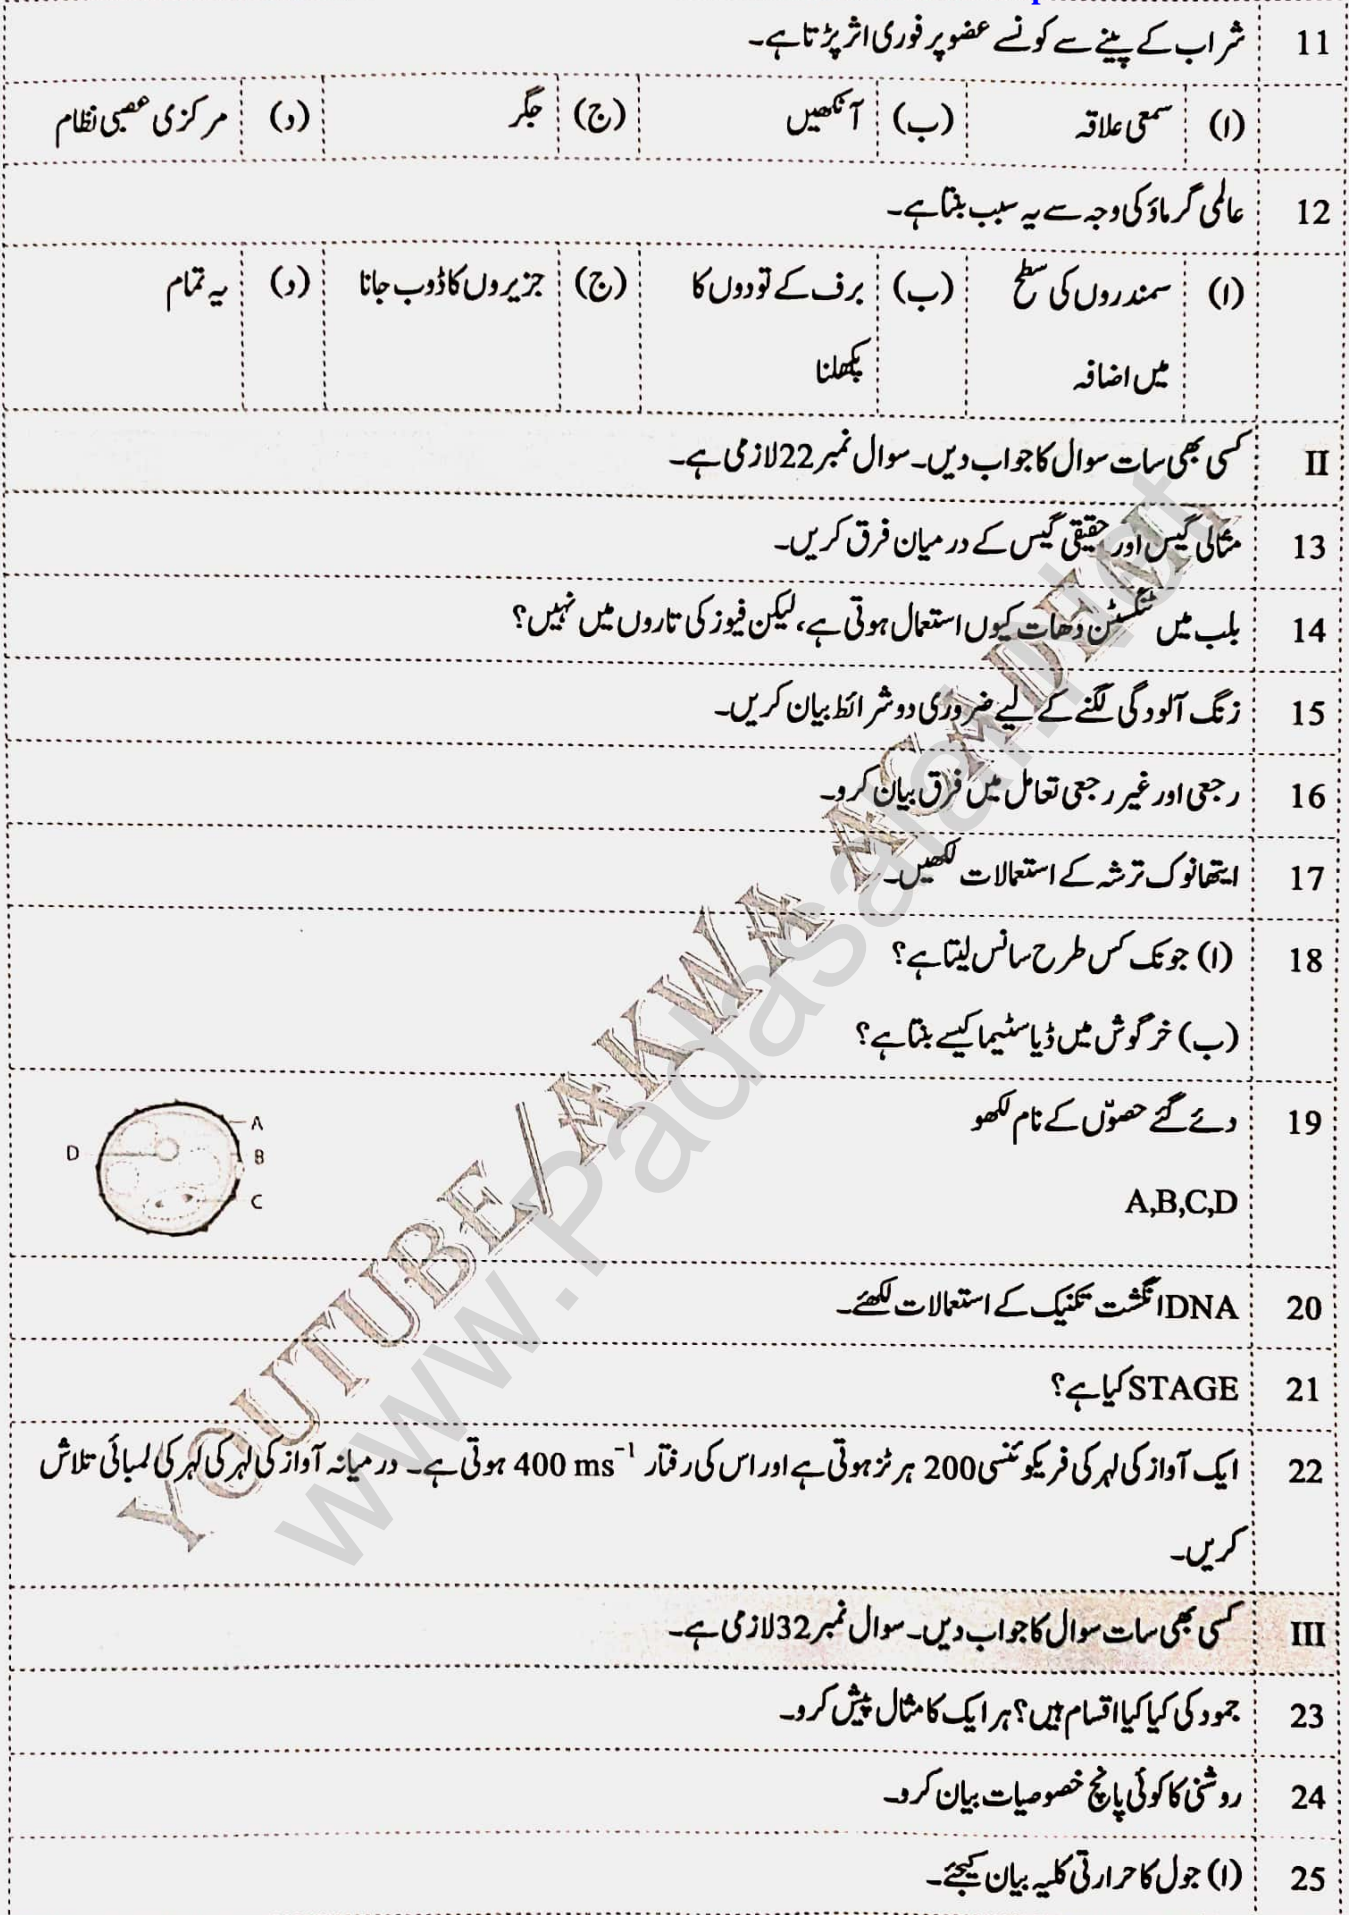 11 شراب کے پینے سے کونسے عضو پر فوری اثر پڑتا ہے۔
(ا) سمعی علاقہ (ب) آنکھیں (ج) جگر (د) مرکزی عصبی نظام
12 عالمی گرماؤ کی وجہ سے یہ سبب بنتا ہے۔
(ا) سمندروں کی سطح (ب) برف کے تودوں کا (ج) جزیروں کا ڈوب جانا (د) یہ تمام
میں اضافہ پکھلنا
II کسی بھی سات سوال کا جواب دیں۔ سوال نمبر 22 لازمی ہے۔
13 مثالی گیس اور حقیقی گیس کے درمیان فرق کریں۔
14 بلب میں ٹنگسٹن دھات کیوں استعمال ہوتی ہے، لیکن فیوز کی تاروں میں نہیں؟
15 زنگ آلودگی لگنے کے لیے ضروری دو شرائط بیان کریں۔
16 رجعی اور غیر رجعی تعامل میں فرق بیان کرو۔
17 ایتھانوک ترشہ کے استعمالات لکھیں۔
18 (ا) جونک کس طرح سانس لیتا ہے؟
(ب) خرگوش میں ڈیاسٹیما کیسے بنتا ہے؟
19 دئے گئے حصوّں کے نام لکھو
A
D B
A,B,C,D
C
20 DNA انگشت تکنیک کے استعمالات لکھئے۔
21 STAGE کیا ہے؟
22 ایک آواز کی لہر کی فریکوئنسی 200 ہرٹز ہوتی ہے اور اس کی رفتار 400 ms⁻¹ ہوتی ہے۔ درمیانہ آواز کی لہر کی لہر کی لمبائی تلاش
کریں۔
III کسی بھی سات سوال کا جواب دیں۔ سوال نمبر 32 لازمی ہے۔
23 جمود کی کیا کیا اقسام ہیں؟ ہر ایک کا مثال پیش کرو۔
24 روشنی کا کوئی پانچ خصوصیات بیان کرو۔
25 (ا) جول کا حرارتی کلیہ بیان کیجئے۔
YOUTUBE/AKWA ACADEMY
www.Padasalai.Net